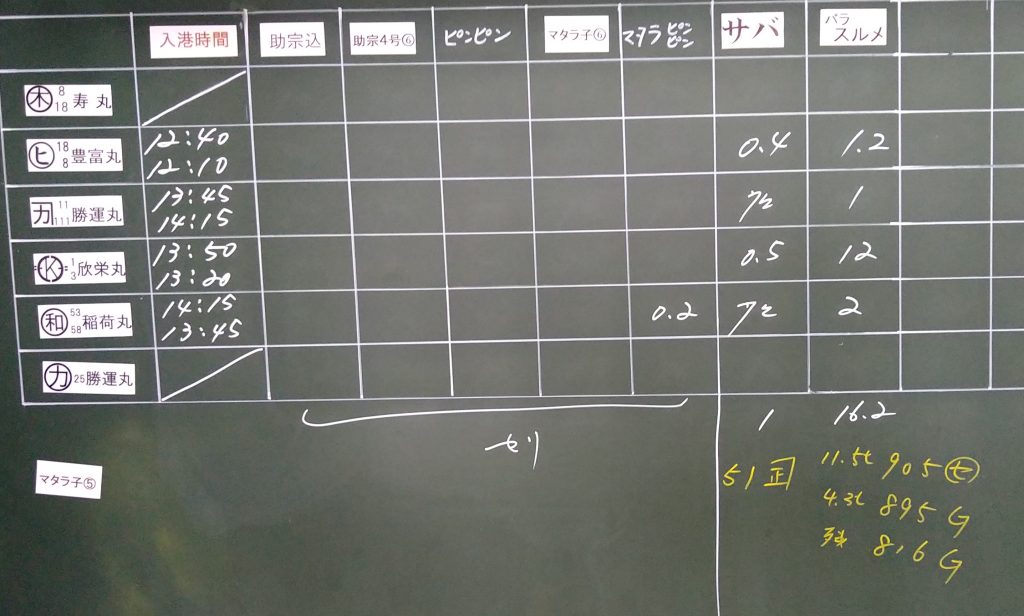 入港時間 助宗込 助宗4号⑥ ピンピン マタラ子⑥ マタラピンピン サバ バラスルメ
㋭ 8 18 寿丸
㋪ 18 8 豊富丸 12:40 12:10 0.4 1.2
カ 11 111 勝運丸 13:45 14:15 1
K 1 3 欣栄丸 13:50 13:20 0.5 12
和 53 58 稲荷丸 14:15 13:45 0.2 2
㋕ 25 勝運丸
1 16.2
セリ
マタラ子⑤
51 正 11.5t 905 ㋲
4.3t 895 G
残 8,6 G